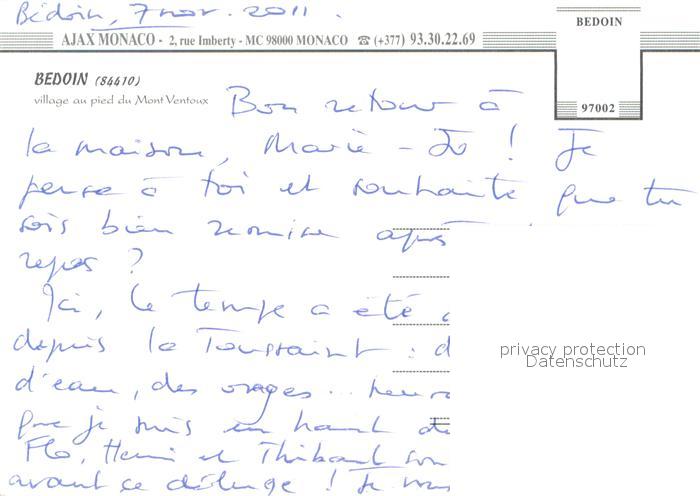 Bédoin, 7 nov. 2011.
AJAX MONACO - 2, rue Imberty - MC 98000 MONACO ☎ (+377) 93.30.22.69
BEDOIN
97002
BEDOIN (84410)
village au pied du Mont Ventoux
Bon retour à
la maison, Marie-Jo ! Je
pense à toi et souhaite que tu
sois bien remise après
repos ?
Ici, le temps a été
depuis la Toussaint : d
d'eau, des orages...
que je suis en haut de
Flo, Henri et Thibaut son
avant ce déluge ! Je vous
privacy protection
Datenschutz